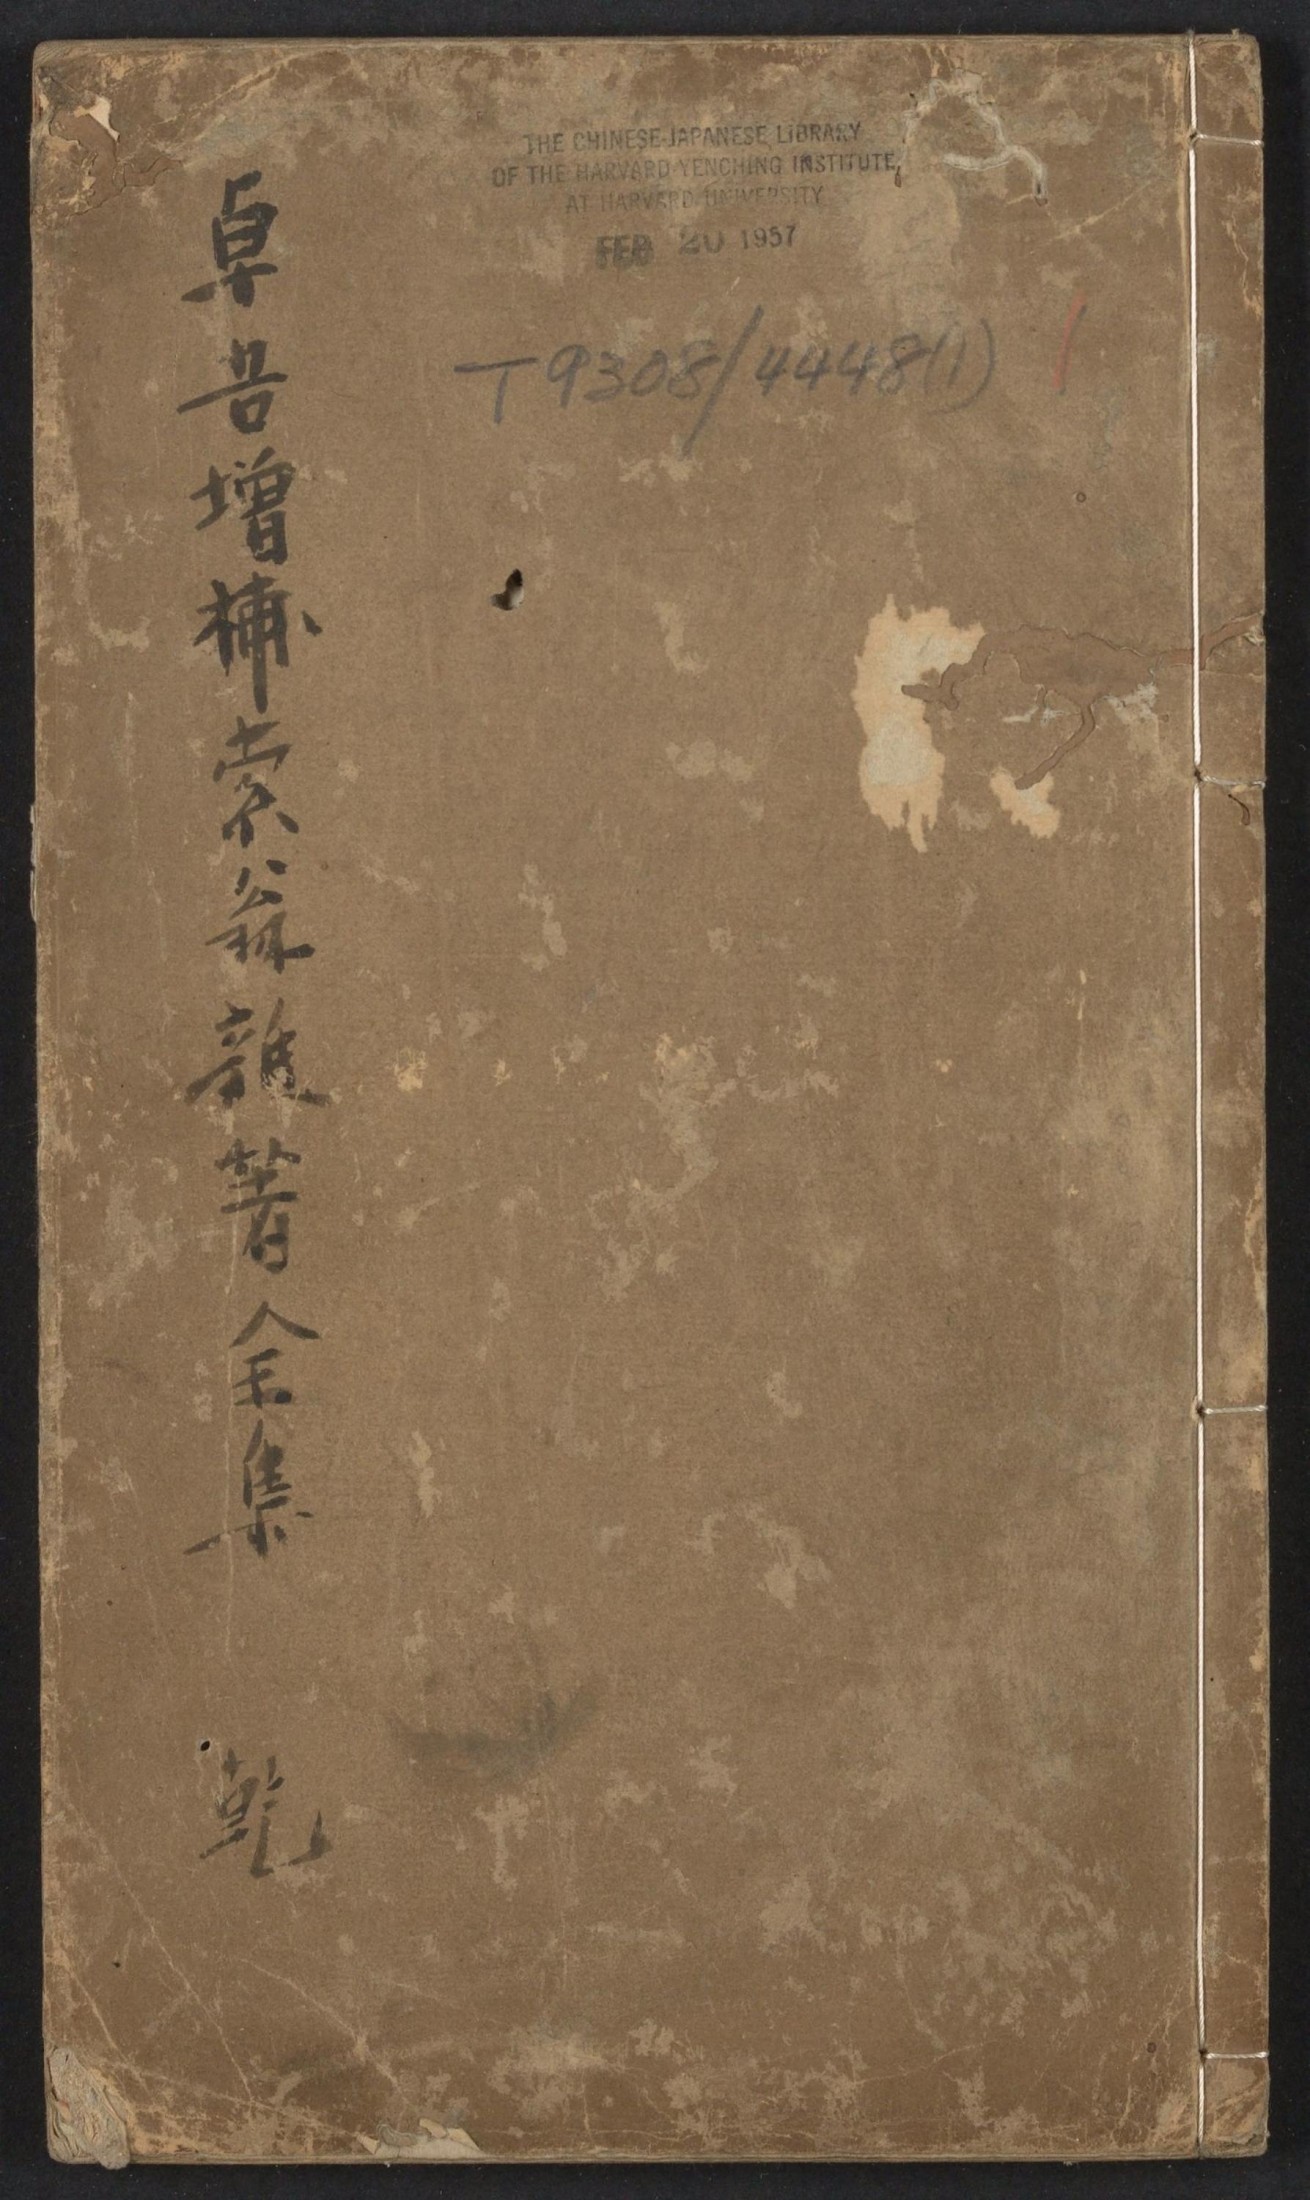 THE CHINESE-JAPANESE LIBRARY
OF THE HARVARD-YENCHING INSTITUTE
AT HARVARD UNIVERSITY
FEB 20 1957
T 9308/4448(1) 1
卓吾增補素翁雜著全集
乾